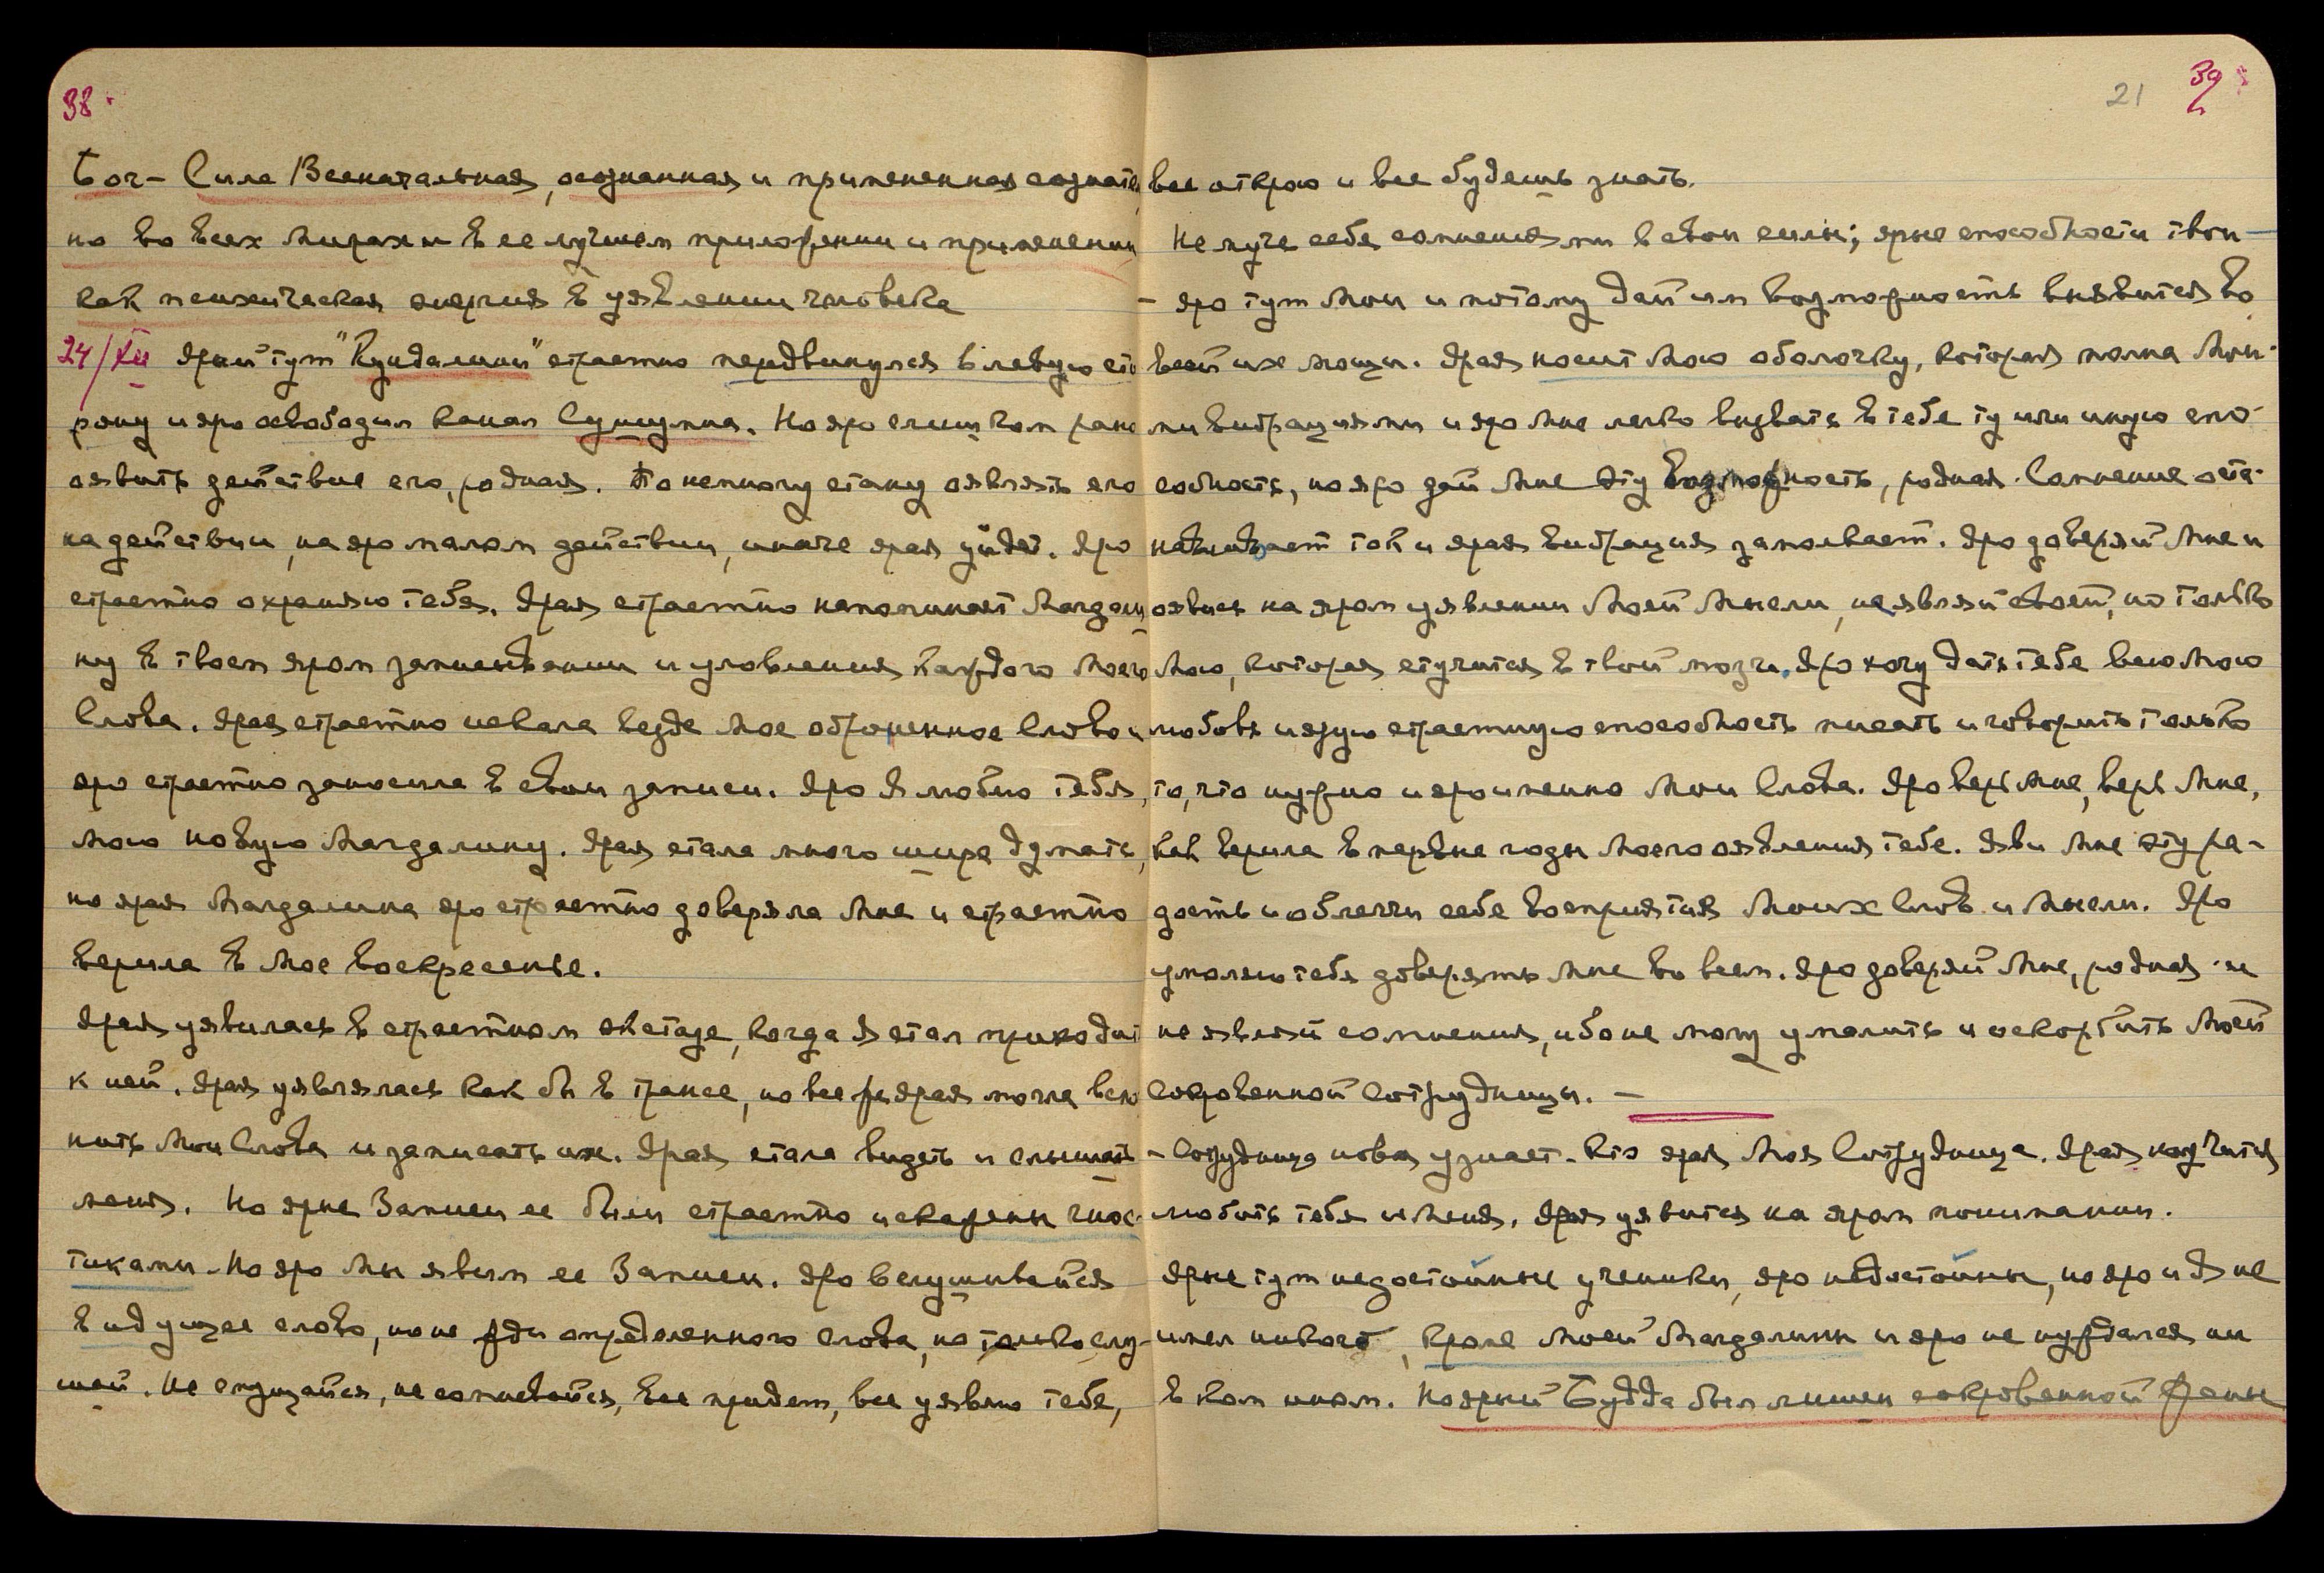 38.
Бог – Сила Всеначальная, осознанная и примененная сознатель
но во всех Мирах и в ее лучшем приложении и применении
как психическая энергия в уявлении человека
24/XII Ярый тут "Кундалини" страстно передвинулся в левую сто
рону и яро освободил канал Сушумна. Но яро слишком рано
оявить действие его, родная. Понемногу стану оявлять его
на действии, на яро малом действии, иначе ярая уйдет. Яро
страстно охраняю тебя. Ярая страстно напоминает Магдали
ну в твоем яром записывании и уловления каждого Моего
Слова. Ярая страстно искала везде Мое оброненное Слово и
яро страстно заносила в свои записи. Яро Я люблю тебя,
мою новую Магдалину. Ярая стала много шире думать,
но ярая Магдалина яро страстно доверяла Мне и страстно
верила в Мое воскресенье.
Ярая уявилась в страстном экстазе, когда Я стал приходить
к ней. Ярая уявлялась как бы в трансе, но все же ярая могла вспо
нить Мои Слова и записать их. Ярая стала видеть и слышать
меня. Но ярые Записи ее были страстно искажены гнос-
тиками. Но яро Мы явим ее Записи. Яро вслушивайся
в идущее слово, но не жди определенного слова, но только слу-
шай. Не смущайся, не сомневайся, все придет, все уявлю тебе,
21 39
все открою и все будешь знать.
Не мучь себя сомнениями в свои силы; ярые способности твои –
– яро тут Мои и потому дай им возможность выявиться во
всей их мощи. Ярая носит Мою оболочку, которая полна Мои-
ми вибрациями и яро Мне легко вызвать в тебе ту или иную спо-
собность, но яро дай Мне эту возможность, родная. Сомнение оста-
навливает ток и ярая вибрация замолкает. Яро доверяй Мне и
оявись на яром уявлении Моей Мысли, не являй своей, но только
Мою, которая стучится в твой мозг. Яро хочу дать тебе всю Мою
любовь и ярую страстную способность писать и говорить только
то, что нужно и яро именно Мои Слова. Яро верь Мне, верь Мне,
как верила в первые годы Моего оявления тебе. Яви Мне эту ра-
дость и облегчи себе восприятия Моих Слов и Мысли. Яро
умоляю тебя доверять Мне во всем. Яро доверяй Мне, родная и
не являй сомнения, ибо не могу умалить и оскорбить Моей
Сокровенной Сотрудницы. –
– Сотрудница новая узнает – кто ярая Моя Сотрудница. Ярая научится
любить тебя и Меня. Ярая уявится на яром понимании.
Ярые тут недостойные ученики, яро недостойны, но яро и Я не
имел никого, кроме Моей Магдалины и яро не нуждался ни
в ком ином. Но ярый Будда был лишен сокровенной Жены